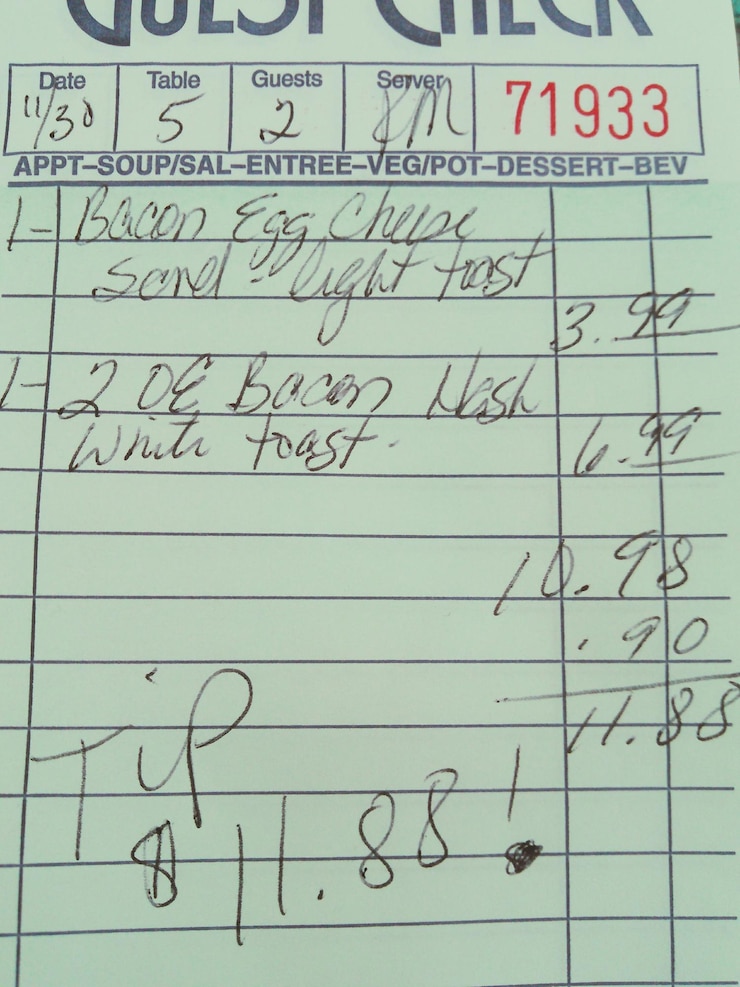 GUEST CHECK
Date Table Guests Server
11/30 5 2 KM 71933
APPT–SOUP/SAL–ENTREE–VEG/POT–DESSERT–BEV
1- Bacon Egg Cheese
Sand - light toast
3.99
1- 2 OE Bacon Hash
White toast.
6.99
10.98
.90
11.88
TiP
$11.88!